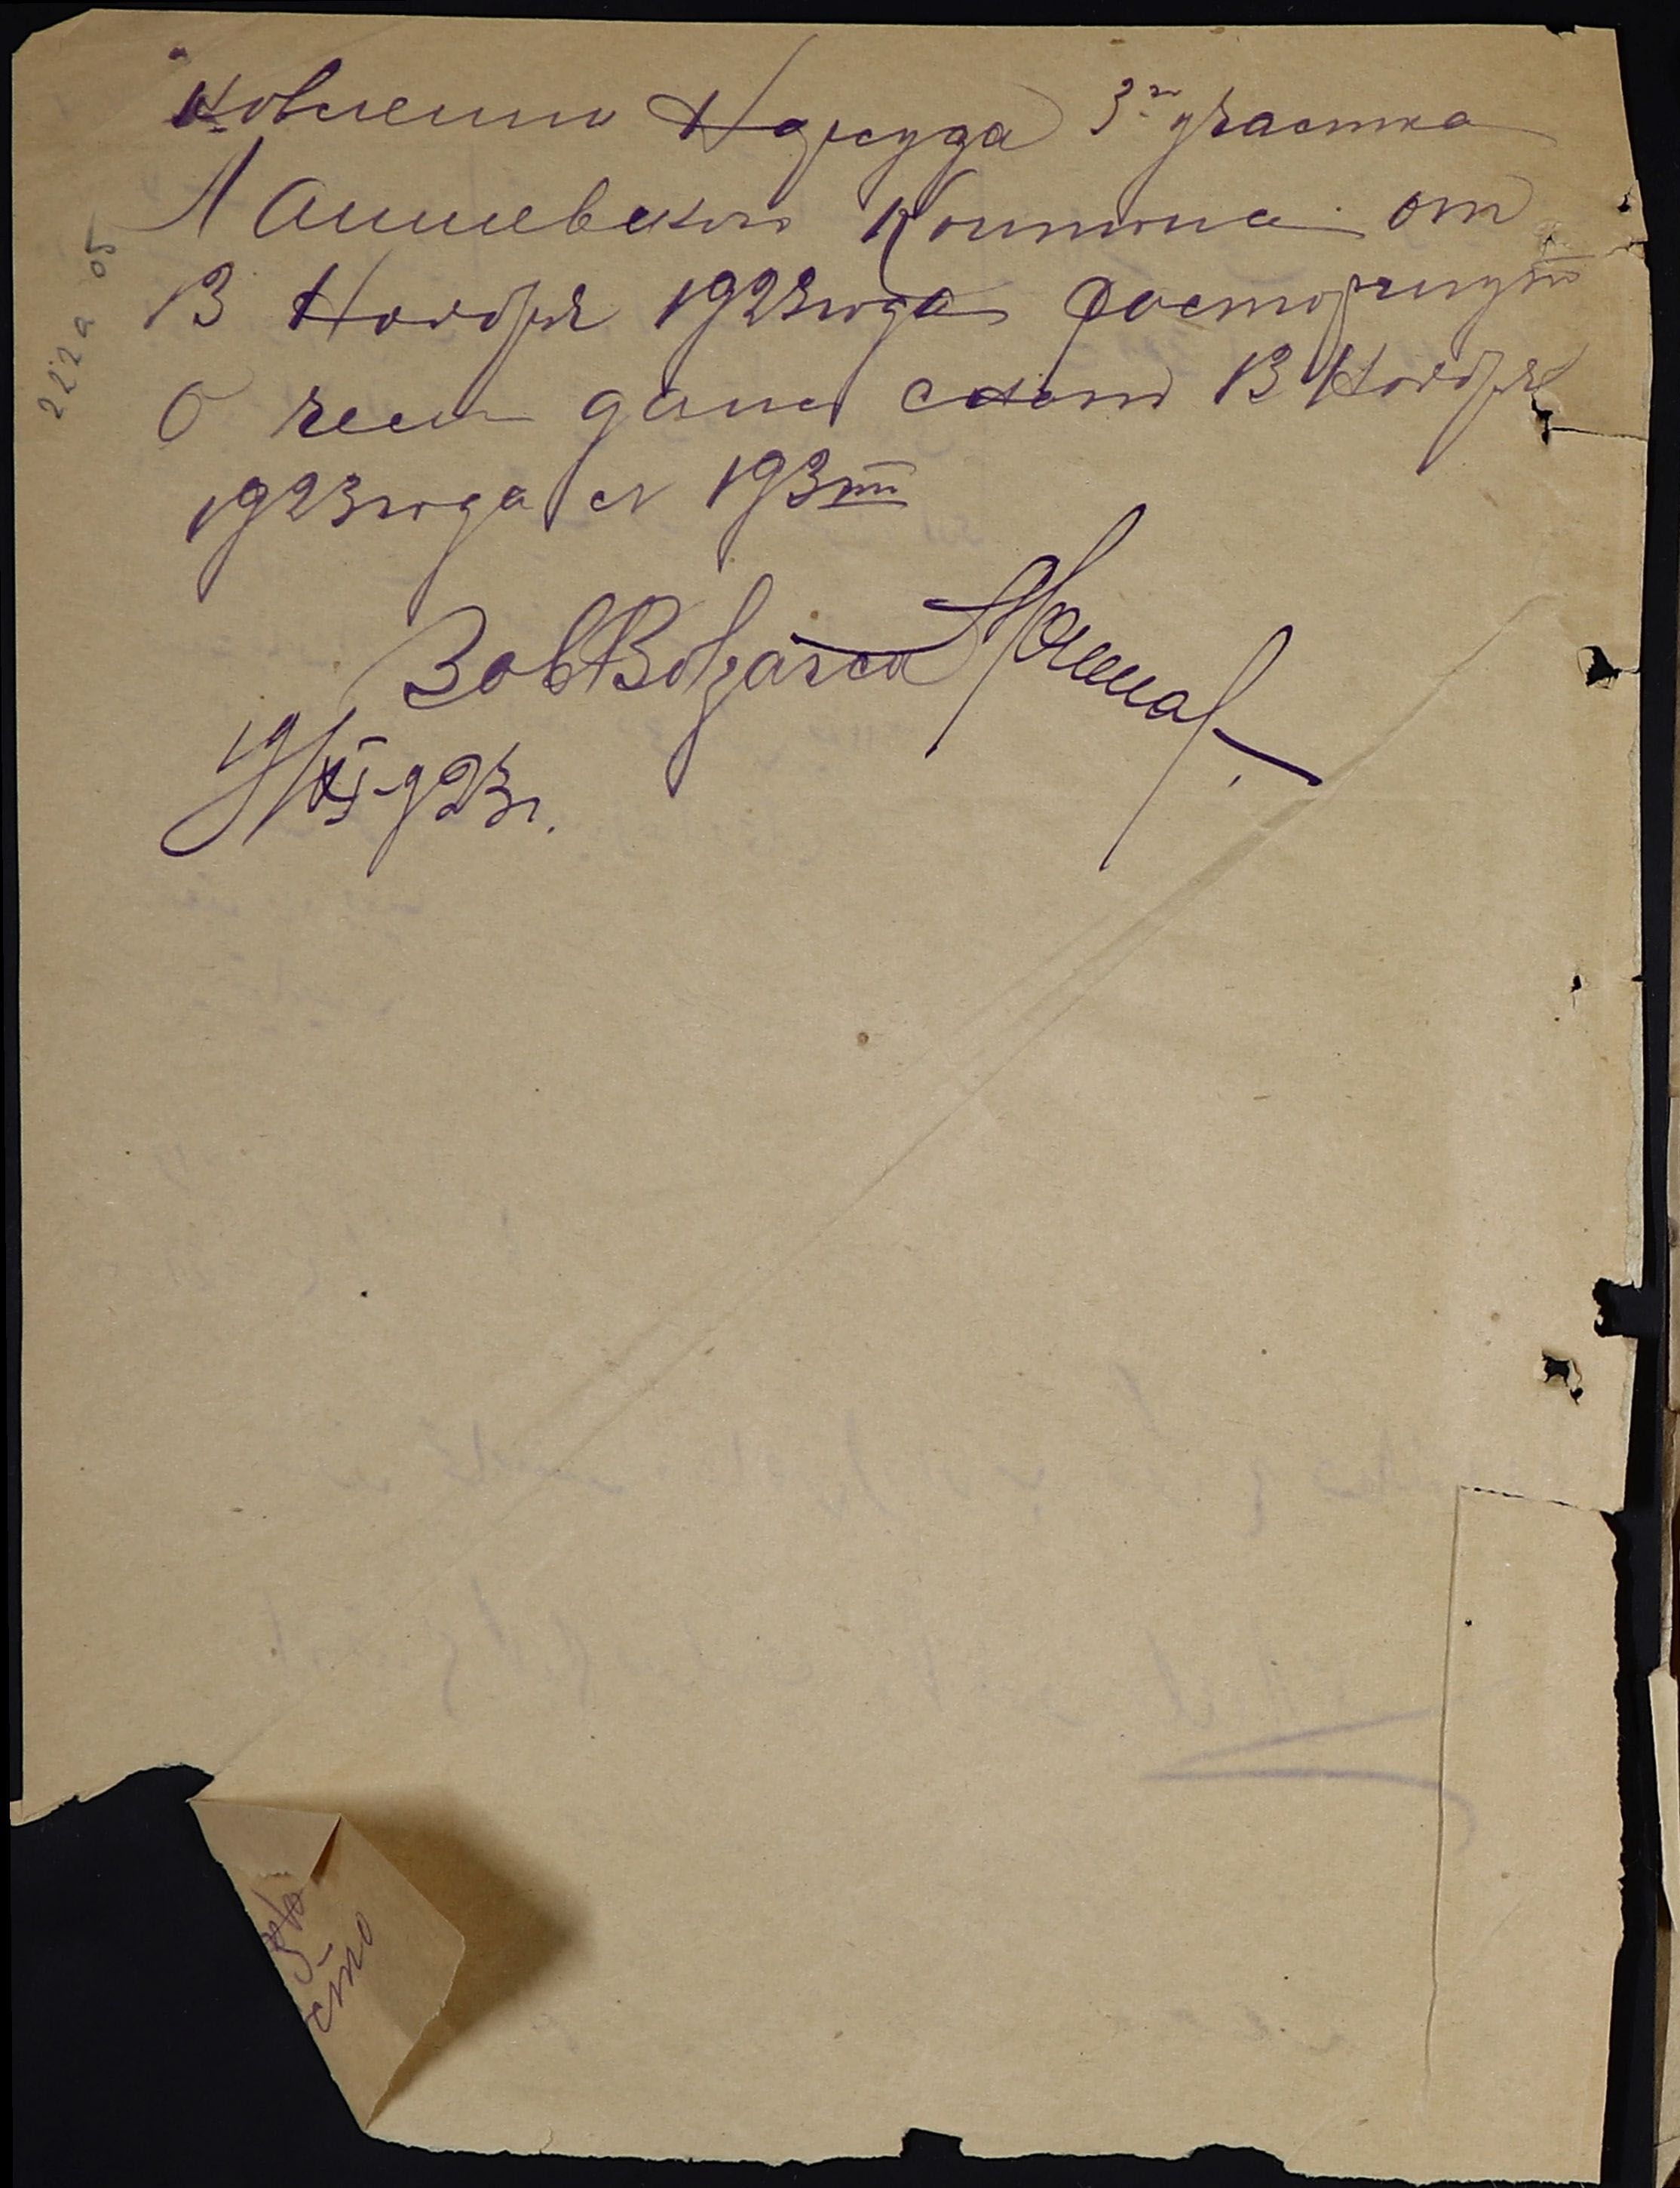 новлению Нарсуда 3го участка
Лаишевского Кантона от
13 Ноября 1923 года расторгнут
О чем дана сего 13 Ноября
1923 года с № 193
ЗавВолзагса
19/XI-923г.
222а об
сто